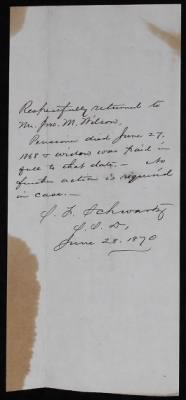 Respectfully returned to
Mr. Jno. M. Wilson.
Pensioner died June 27,
1868 & widow was paid in
full to that date, — No
further action is required
in case. —
C. F. Schwartz
June 28. 1870